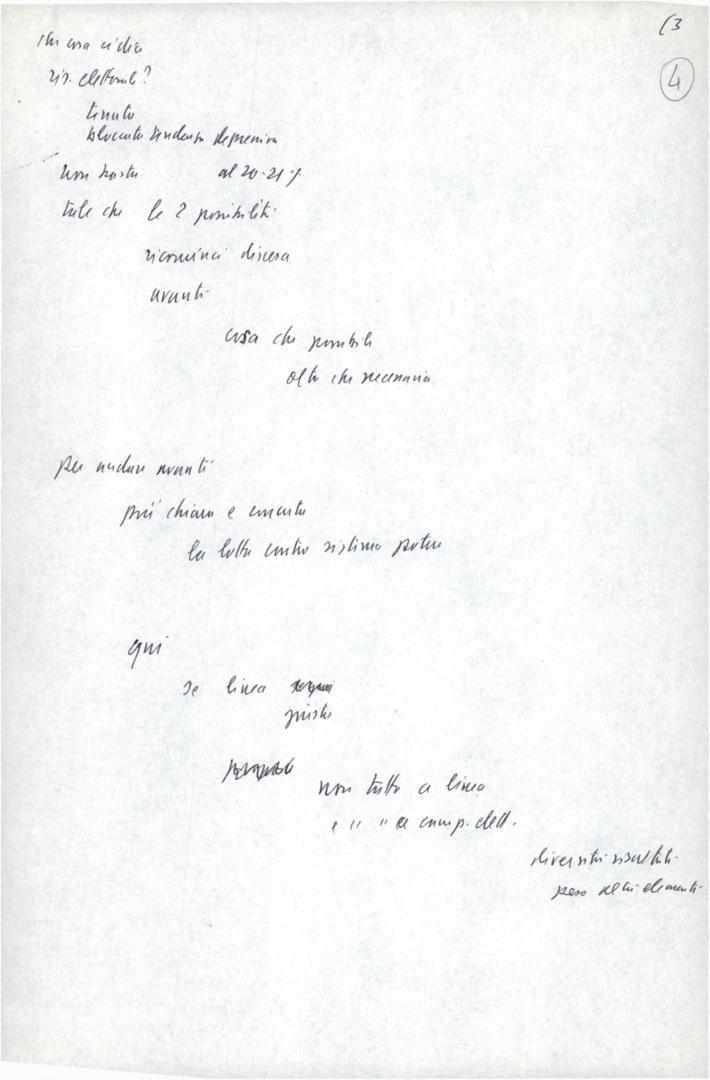 (3
4
che cosa ci dice
ris. elettorale?
tenuto
bloccata tendenza depressiva
non basta al 20-21%
tale che le 2 possibilità
ricominci discesa
avanti
cosa che possibile
oltre che necessaria
per andare avanti
più chiara e concreta
la lotta contro sistema potere
qui
se linea
giusta
non tutto a linea
e " " a camp. elett.
diversità risultati
peso altri elementi